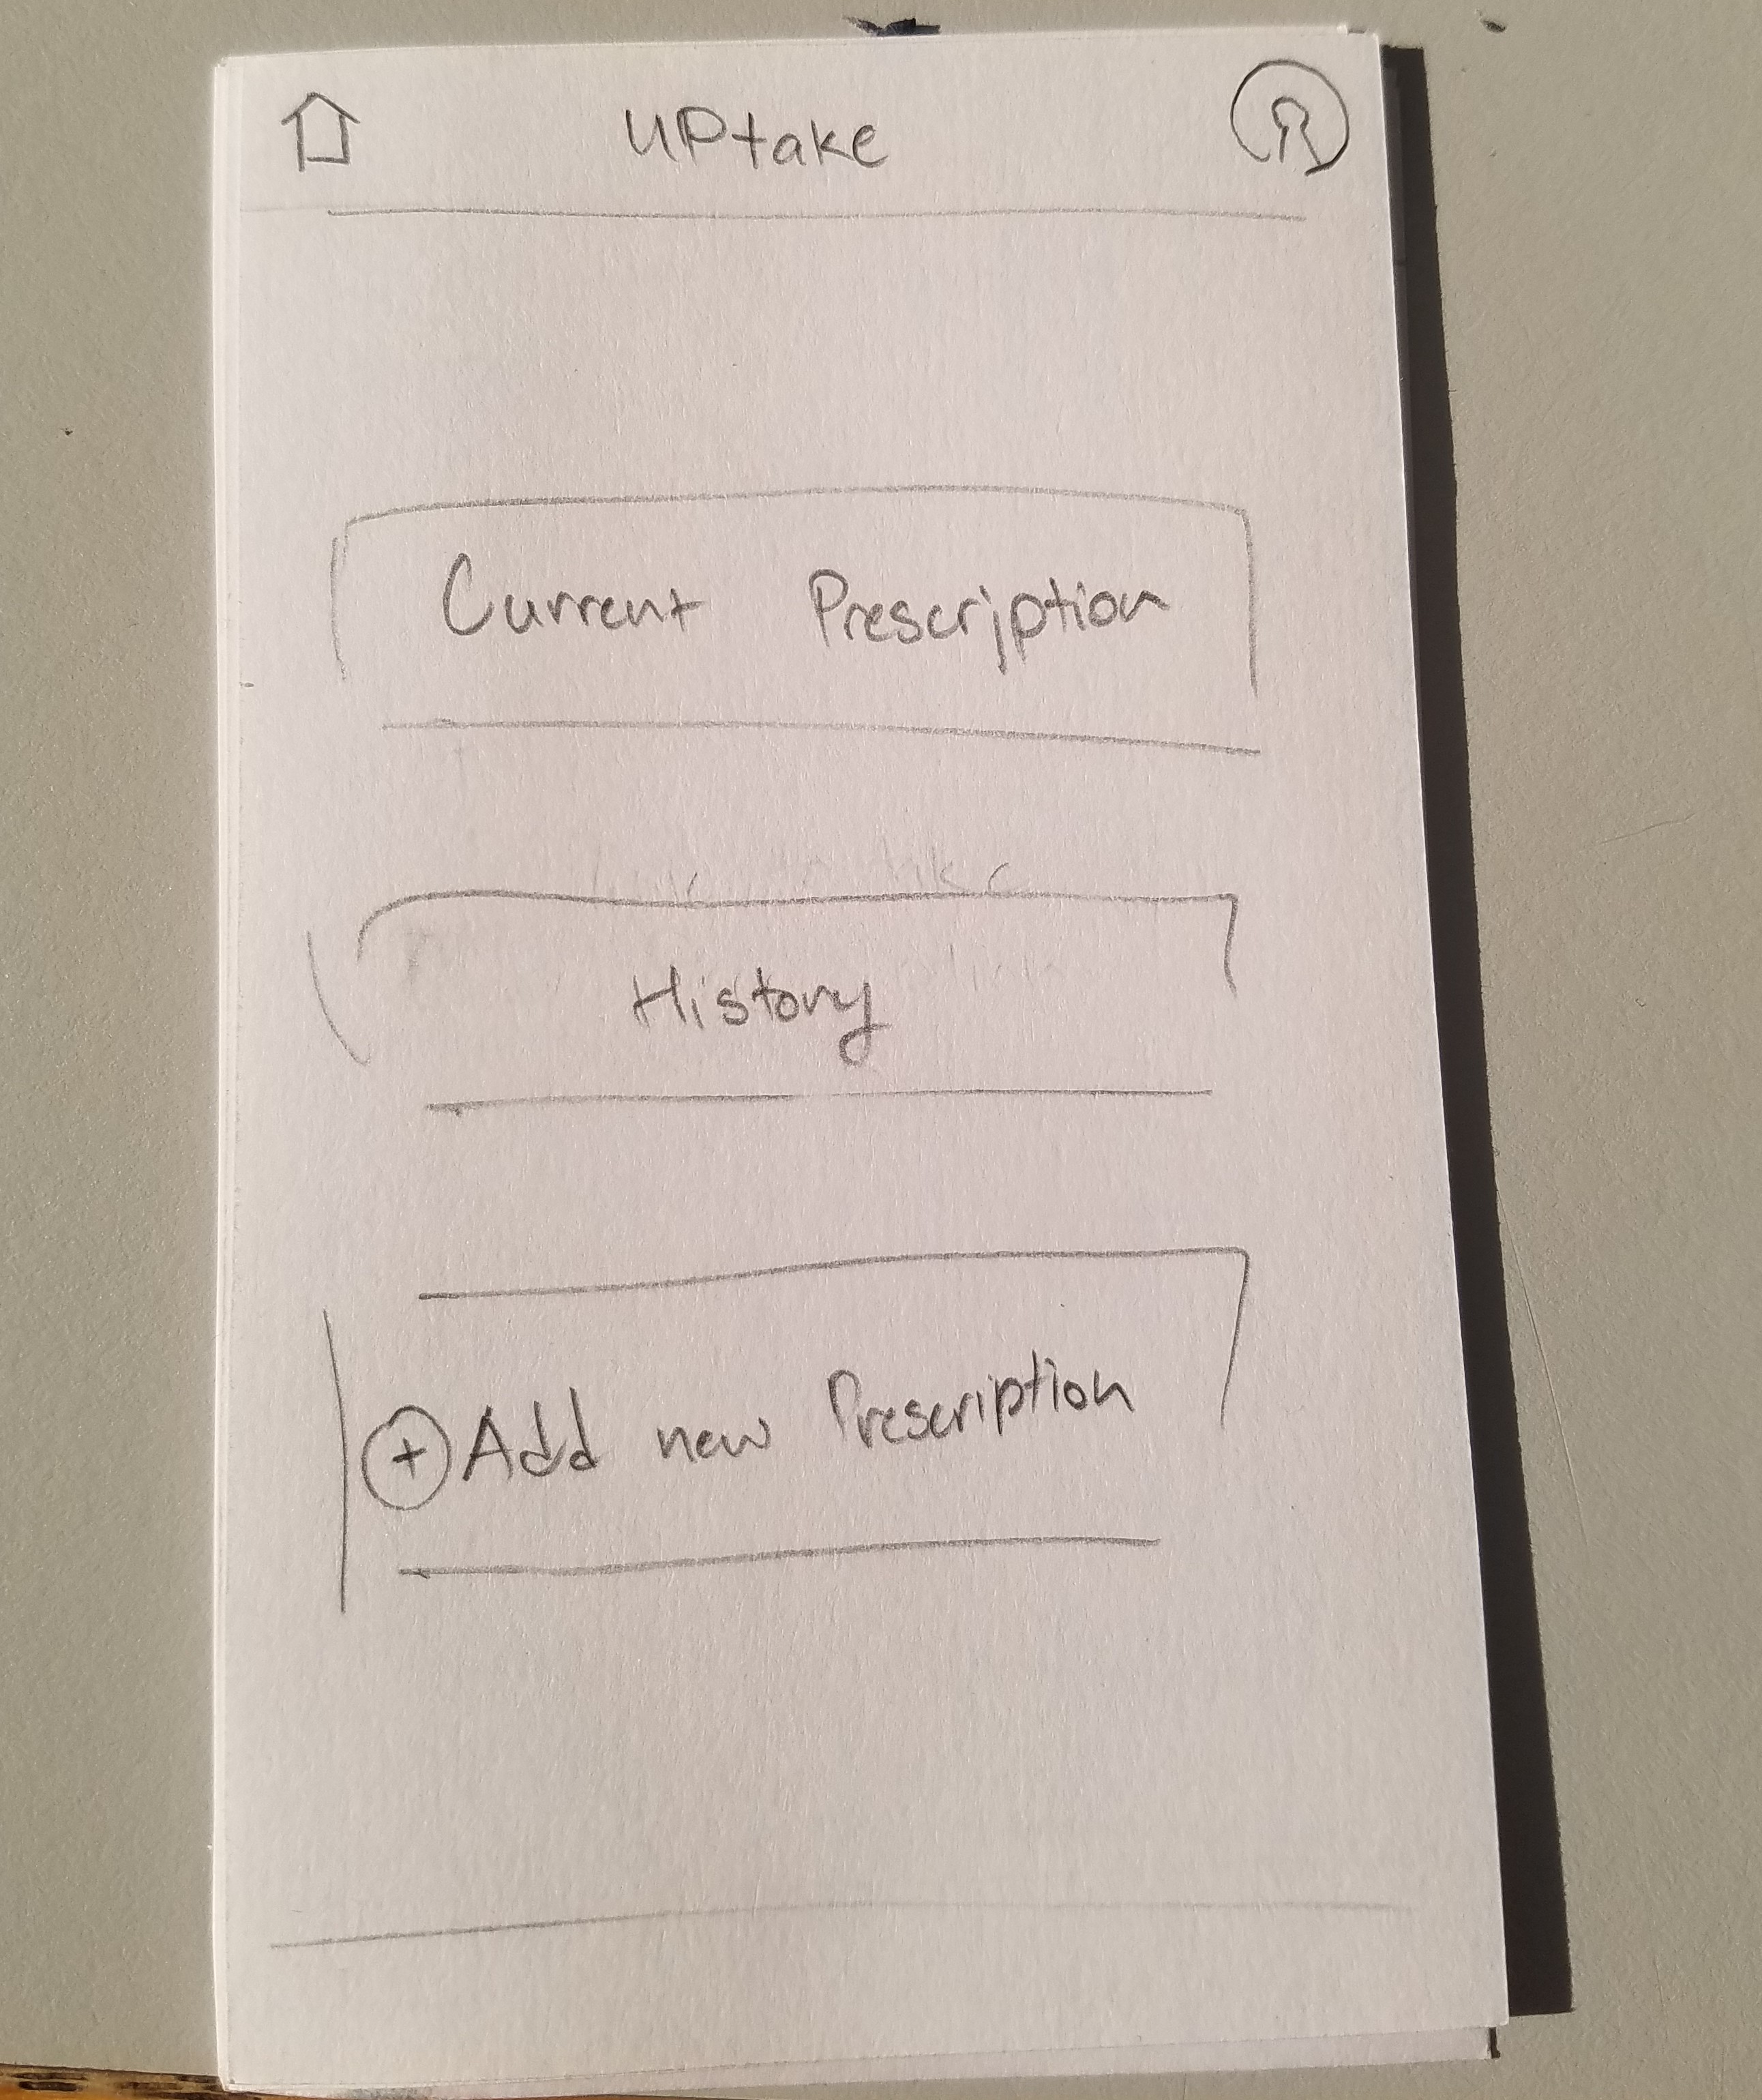 UPtake
Current Prescription
History
+ Add new Prescription